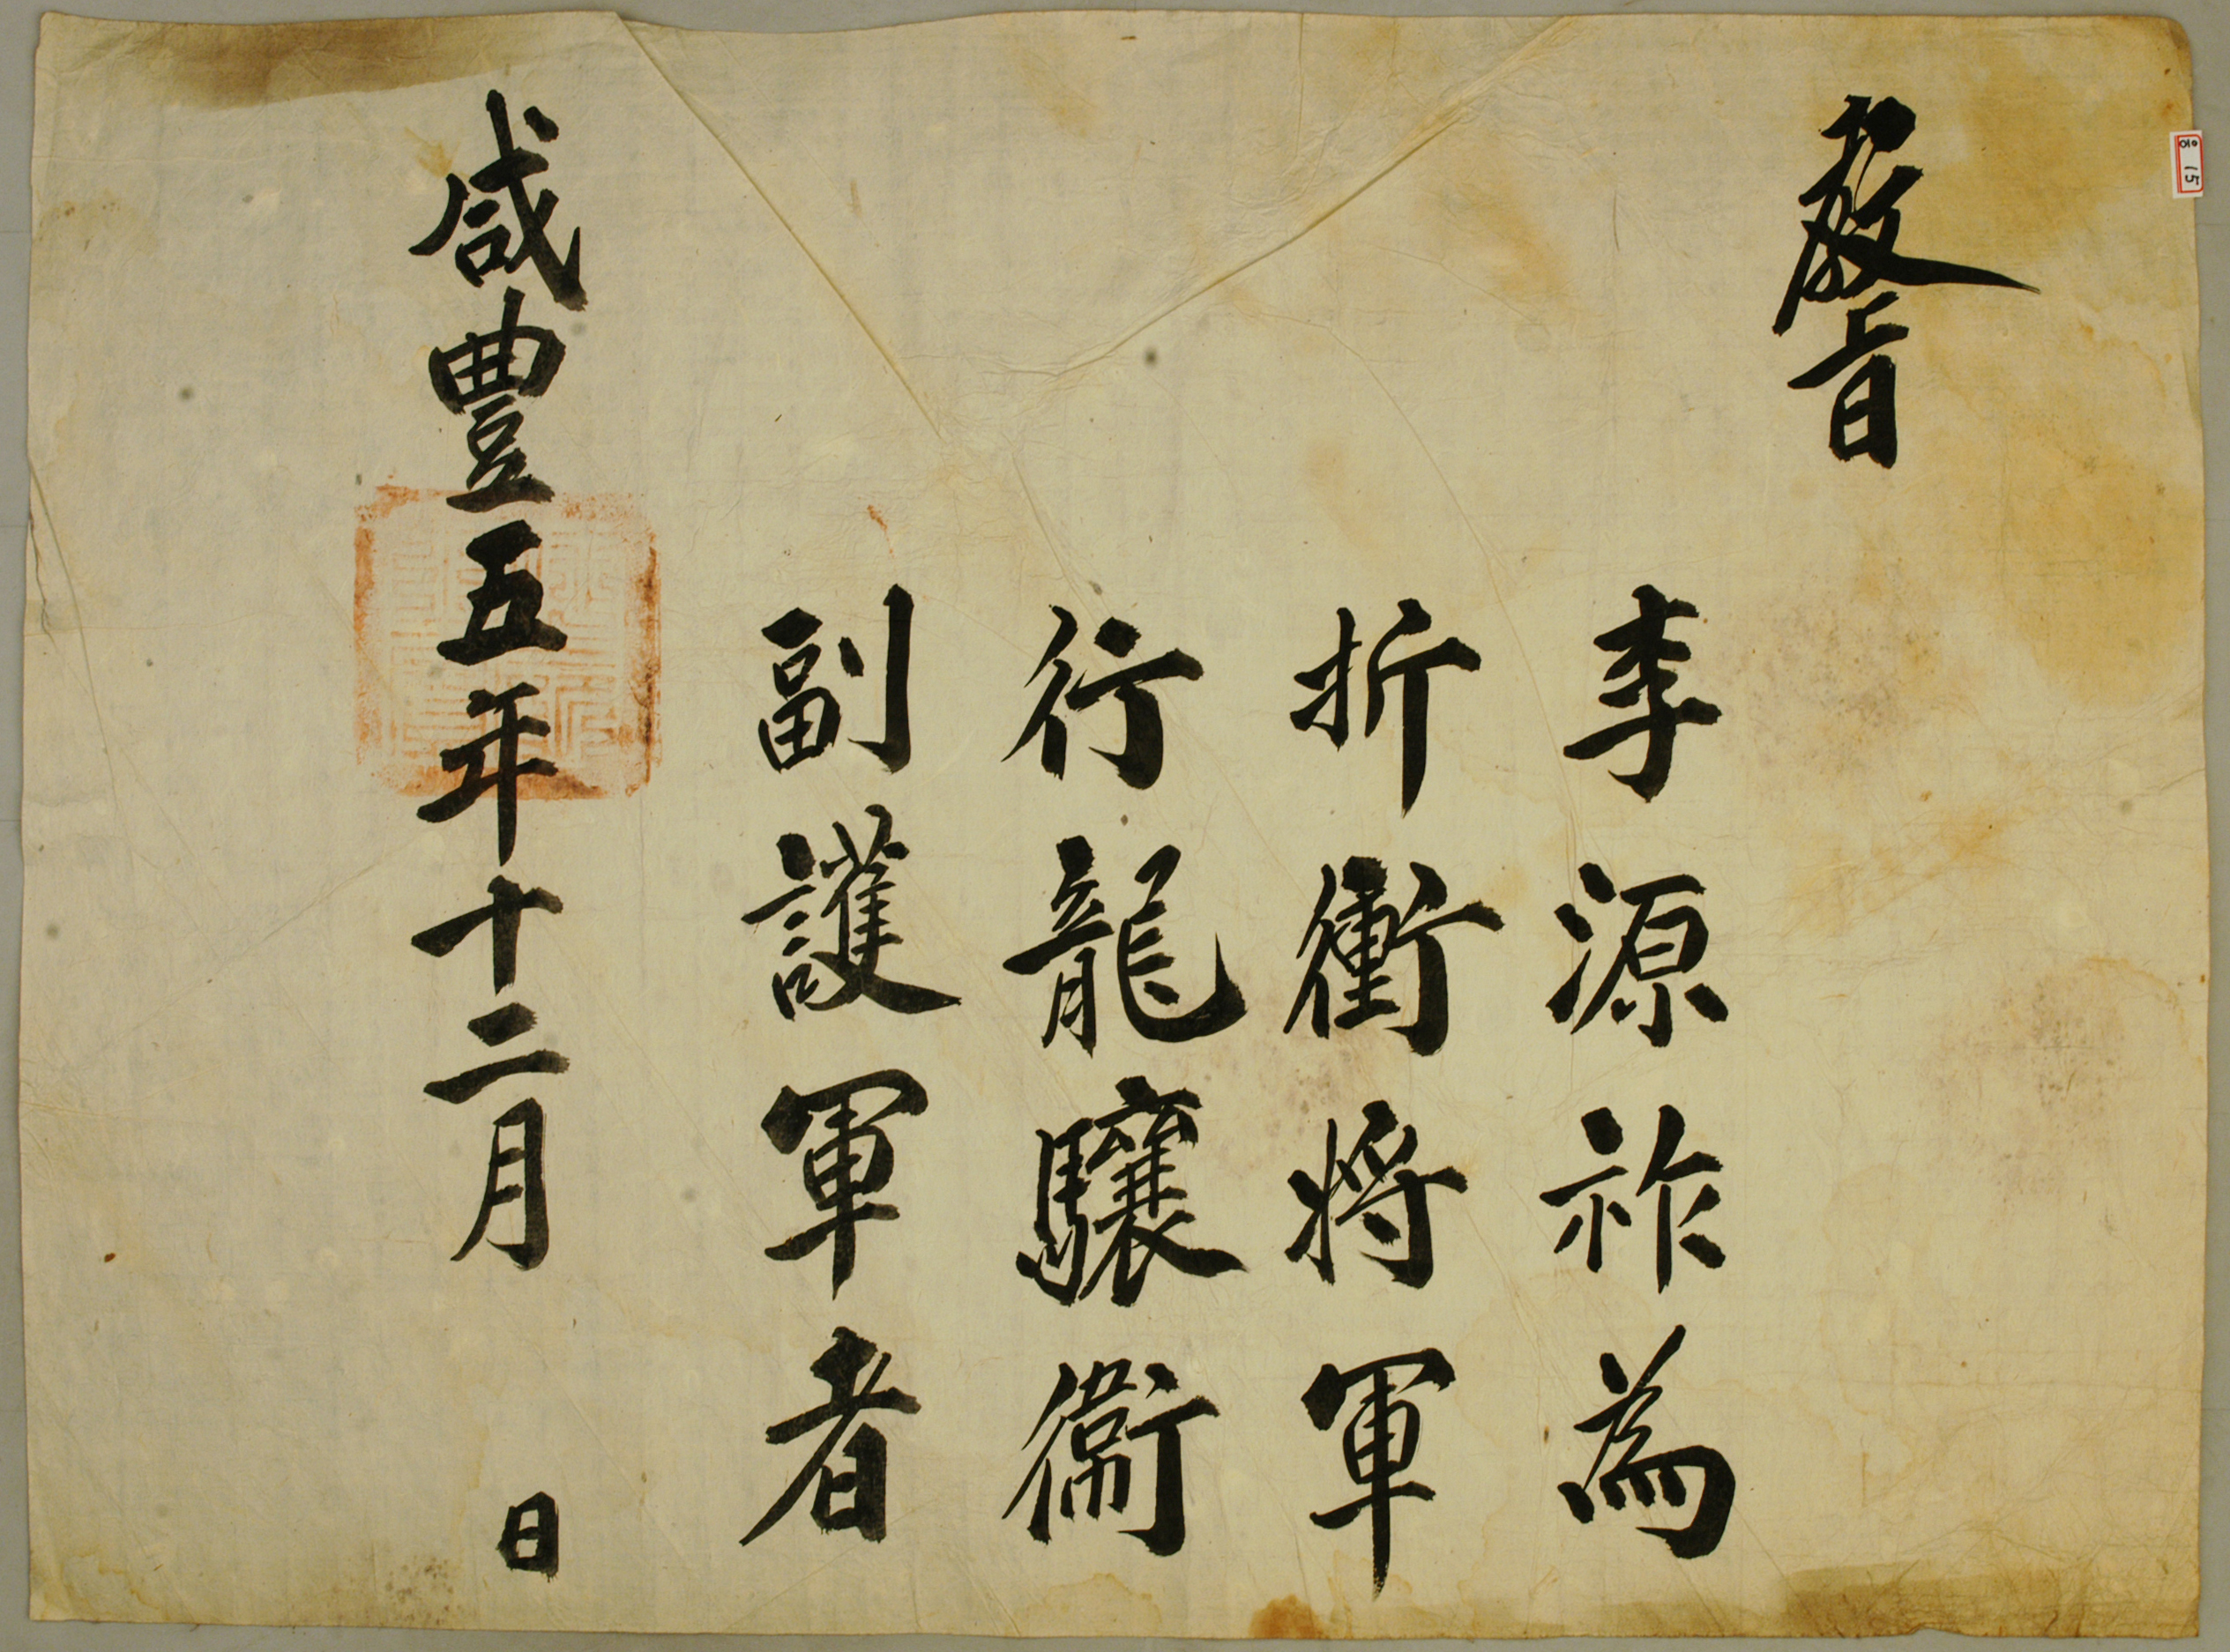 敎旨
李源祚爲
折衝將軍
行龍驤衛
副護軍者
咸豊五年十二月 日
15